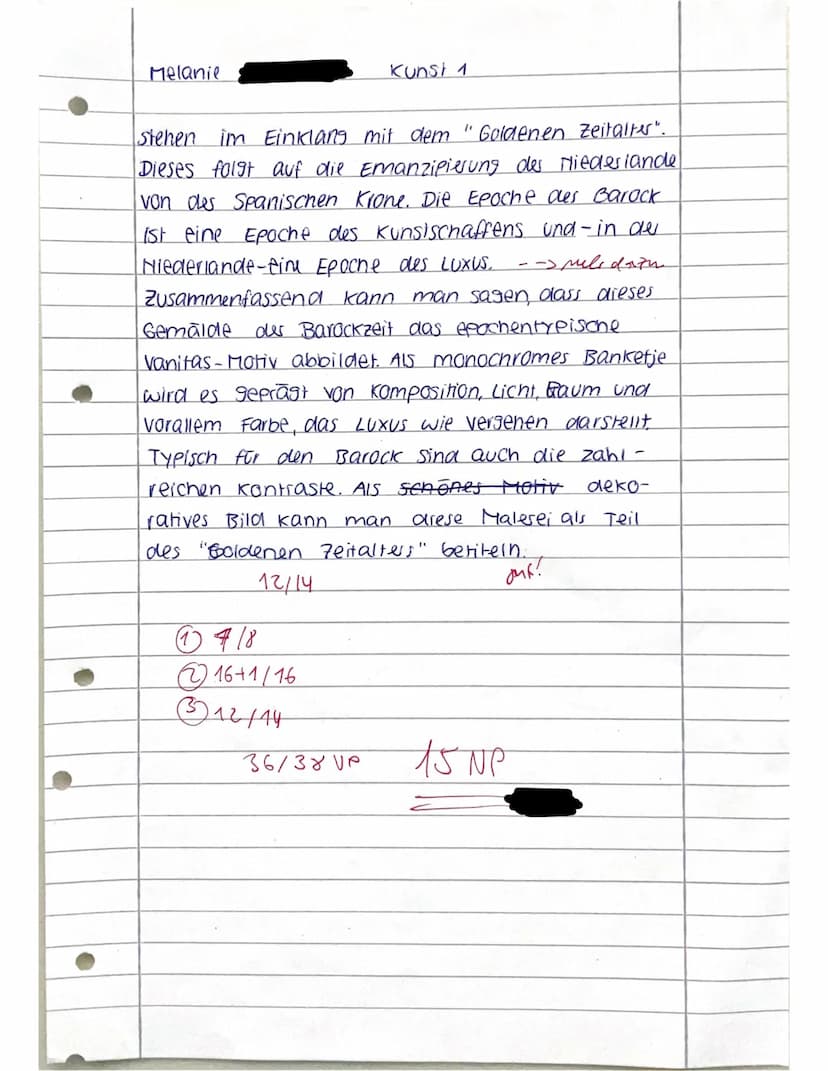 Melanie Kunst 1
stehen im Einklang mit dem "Goldenen Zeitalter".
Dieses folgt auf die Emanzipierung der Niederlande
von der Spanischen Krone. Die Epoche des Barock
ist eine Epoche des Kunstschaffens und - in der
Niederlande - eine Epoche des Luxus. --> mehr dazu
Zusammenfassend kann man sagen, dass dieses
Gemälde der Barockzeit das epochentypische
Vanitas-Motiv abbildet. Als monochromes Banketje
wird es geprägt von Komposition, Licht, Raum und
vorallem Farbe, das Luxus wie Vergehen darstellt.
Typisch für den Barock sind auch die zahl-
reichen Kontraste. Als schönes Motiv deko-
ratives Bild kann man diese Malerei als Teil
des "Goldenen Zeitalters" betiteln.
12/14 gut!
① 7/8
② 16+1/16
③ 12/14
36/38 VP 15 NP